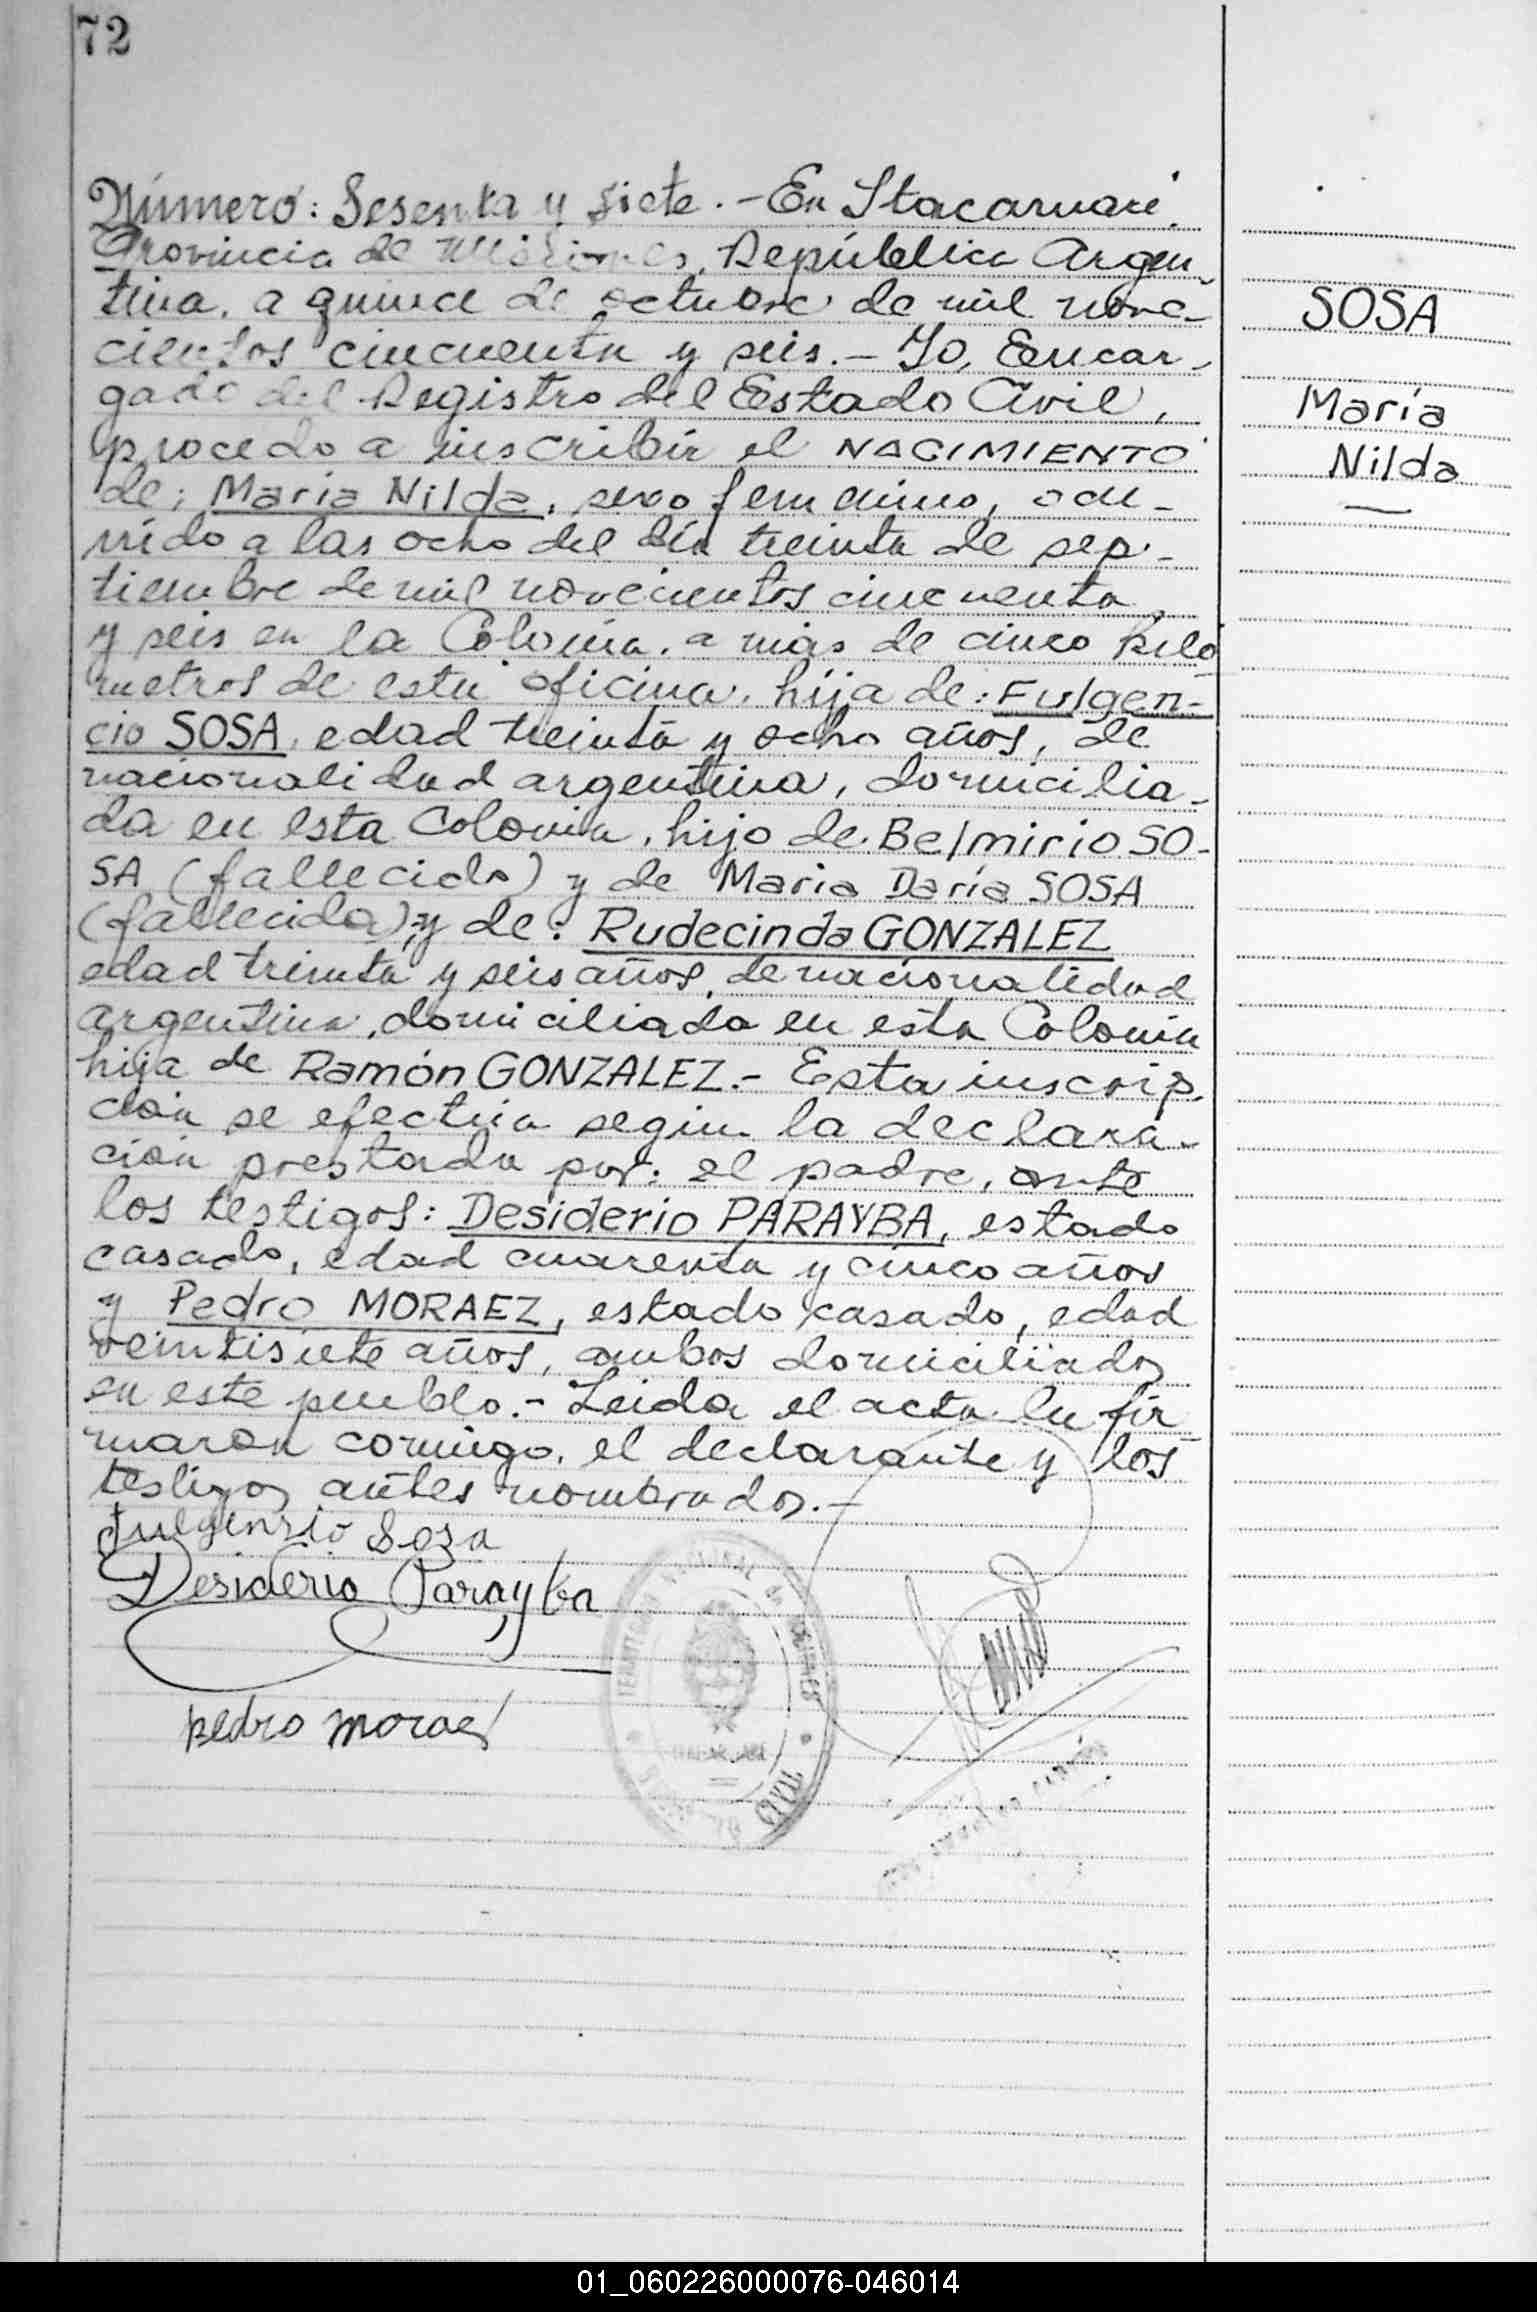 72
Número: Sesenta y siete.- En Itacaruaré,
Provincia de Misiones, República Argen-
tina, a quince de octubre de mil nove-
cientos cincuenta y seis.- Yo, Encar-
gado del Registro del Estado Civil,
procedo a inscribir el NACIMIENTO
de: María Nilda, sexo femenino, ocu-
rrido a las ocho del día treinta de sep-
tiembre de mil novecientos cincuenta
y seis en la Colonia, a más de cinco kiló
metros de esta oficina, hija de: Fulgen-
cio SOSA, edad treinta y ocho años, de
nacionalidad argentina, domicilia-
da en esta Colonia, hijo de Belmirio SO-
SA (fallecido) y de Maria Daría SOSA
(fallecida) y de: Rudecinda GONZALEZ
edad treinta y seis años, de nacionalidad
argentina, domiciliada en esta Colonia
hija de Ramón GONZALEZ.- Esta inscrip-
ción se efectúa según la declara-
ción prestada por: el padre, ante
los testigos: Desiderio PARAYBA, estado
casado, edad cuarenta y cinco años
y Pedro MORAEZ, estado casado, edad
veintisiete años, ambos domiciliados
en este pueblo.- Leida el acta la fir
maron conmigo, el declarante y los
testigos antes nombrados.-
Fulgensio Sosa
Desiderio Parayba
pedro moraes
TERRITORIO NACIONAL DE MISIONES
CIVIL
SOSA
María
Nilda
01_060226000076-046014